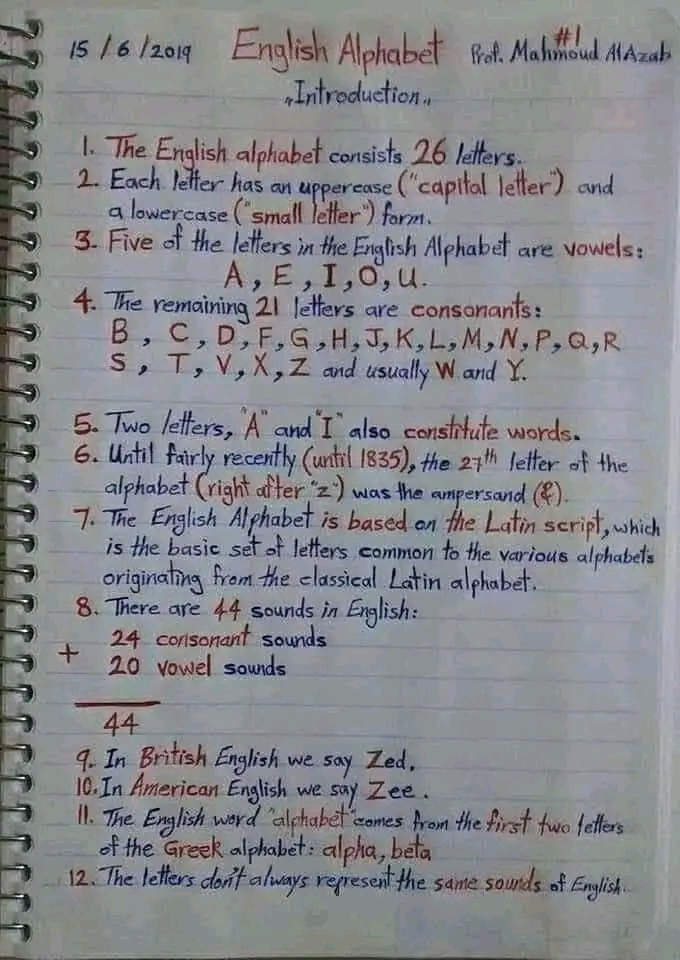 15/6/2019 English Alphabet #1 Prof. Mahmoud AlAzab
"Introduction"
1. The English alphabet consists 26 letters.
2. Each letter has an uppercase ("capital letter") and
a lowercase ("small letter") form.
3. Five of the letters in the English Alphabet are vowels:
A, E, I, O, U.
4. The remaining 21 letters are consonants:
B, C, D, F, G, H, J, K, L, M, N, P, Q, R
S, T, V, X, Z and usually W and Y.
5. Two letters, "A" and "I" also constitute words.
6. Until fairly recently (until 1835), the 27th letter of the
alphabet (right after "z") was the ampersand (&).
7. The English Alphabet is based on the Latin script, which
is the basic set of letters common to the various alphabets
originating from the classical Latin alphabet.
8. There are 44 sounds in English:
24 consonant sounds
+ 20 vowel sounds
44
9. In British English we say Zed.
10. In American English we say Zee.
11. The English word "alphabet" comes from the first two letters
of the Greek alphabet: alpha, beta
12. The letters don't always represent the same sounds of English.